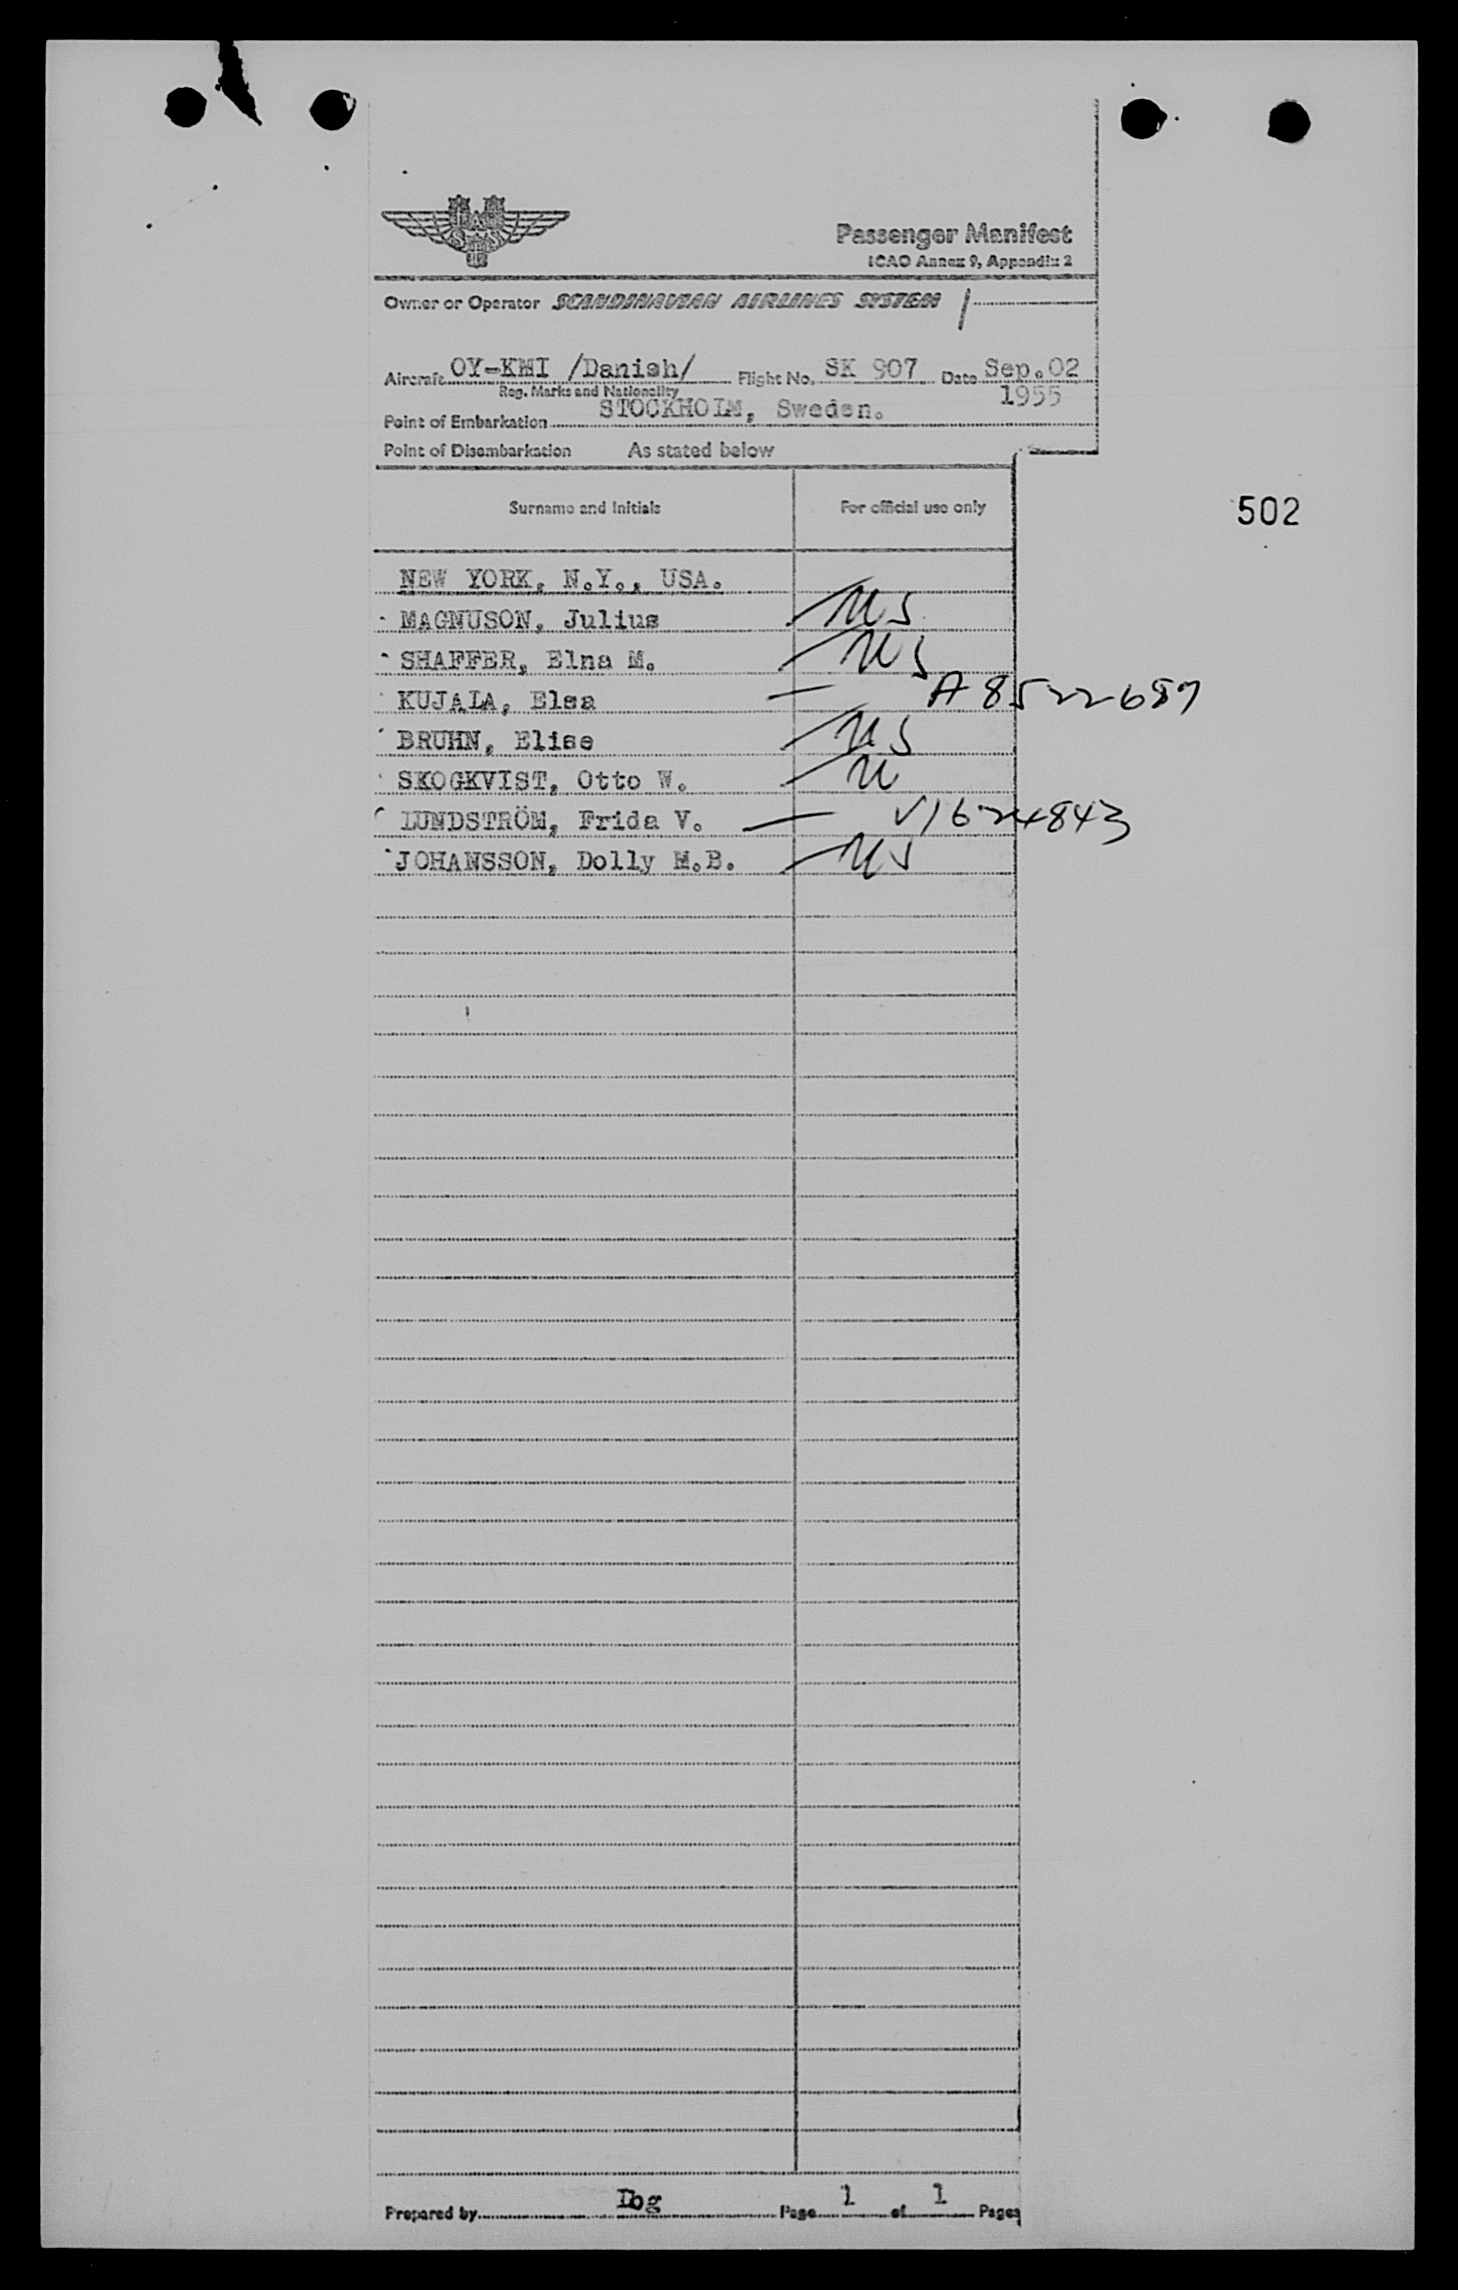 SAS
Passenger Manifest
ICAO Annex 9, Appendix 2
Owner or Operator SCANDINAVIAN AIRLINES SYSTEM /
Aircraft OY-KMI /Danish/ Flight No. SK 907 Date Sep.02
Reg. Marks and Nationality 1955
Point of Embarkation STOCKHOLM, Sweden.
Point of Disembarkation As stated below
Surname and Initials For official use only
502
NEW YORK, N.Y., USA.
MAGNUSON, Julius US
SHAFFER, Elna M. US
KUJALA, Elsa — A8522687
BRUHN, Elise US
SKOGKVIST, Otto W. U
LUNDSTRÖM, Frida V. — V1624843
JOHANSSON, Dolly M.B. US
Prepared by Dbg Page 1 of 1 Pages